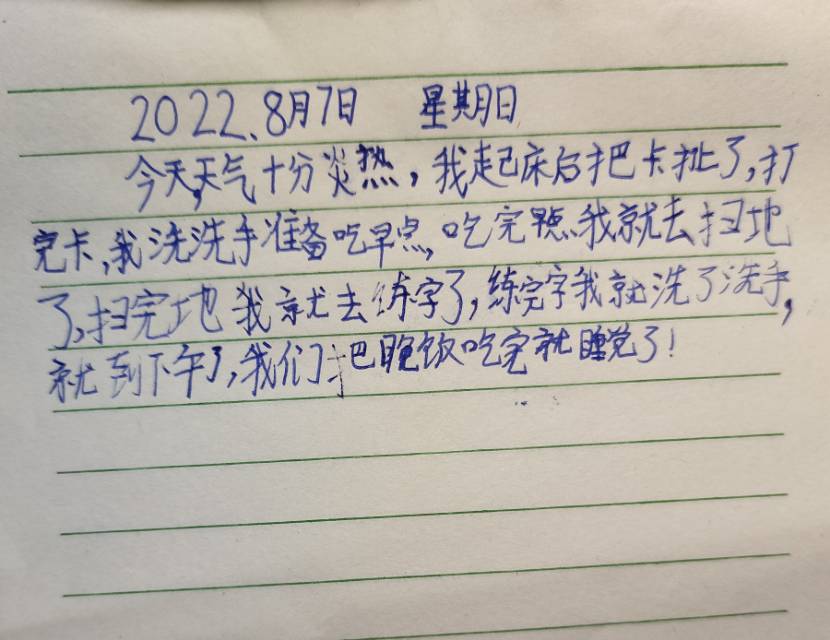 2022、8月7日 星期日
今天,天气十分炎热,我起床后把卡扯了,打
完卡,我洗洗手准备吃早点,吃完 我就去扫地
了,扫完地我就去练字了,练完字我就洗了洗手,
就到下午了,我们把晚饭吃完就睡觉了!